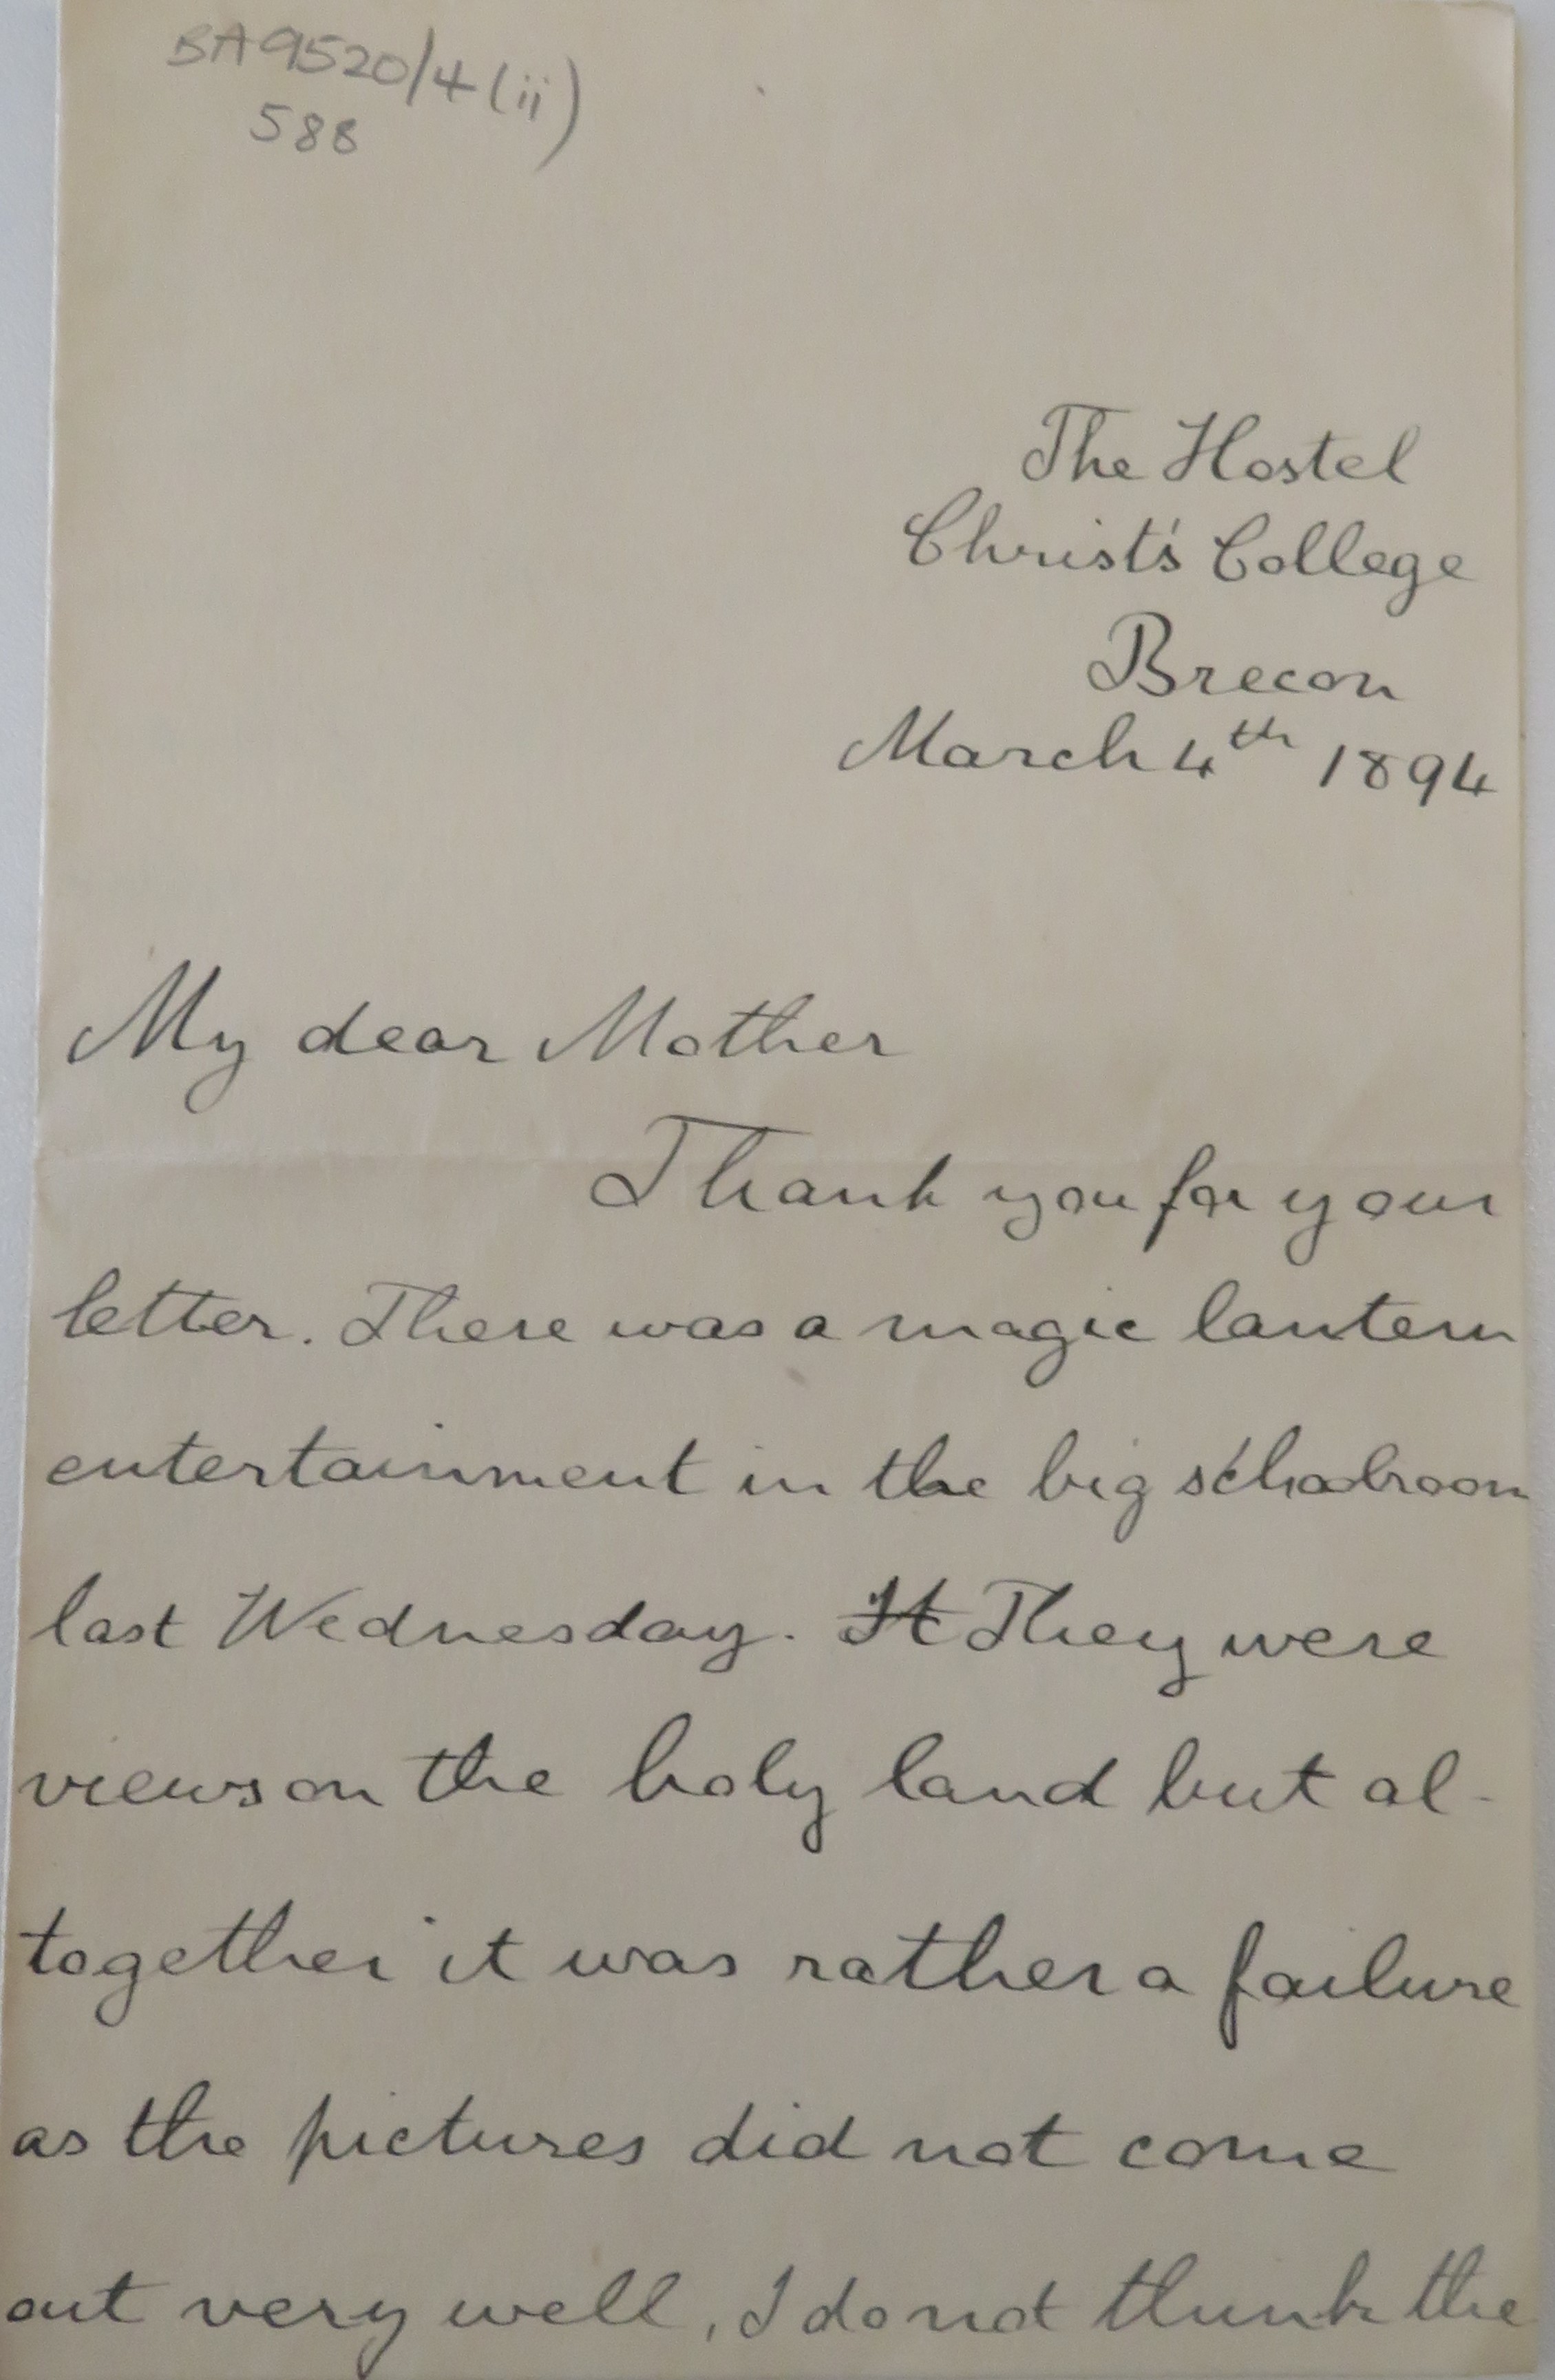 BA9520/4(ii)
588
The Hostel
Christ's College
Brecon
March 4th 1894
My dear Mother
Thank you for your
letter. There was a magic lantern
entertainment in the big schoolroom
last Wednesday. It They were
views on the holy land but al-
together it was rather a failure
as the pictures did not come
out very well, I do not think the